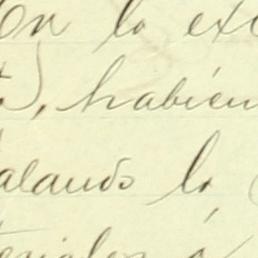 En lo ex
, habien
alando lo
teriales á